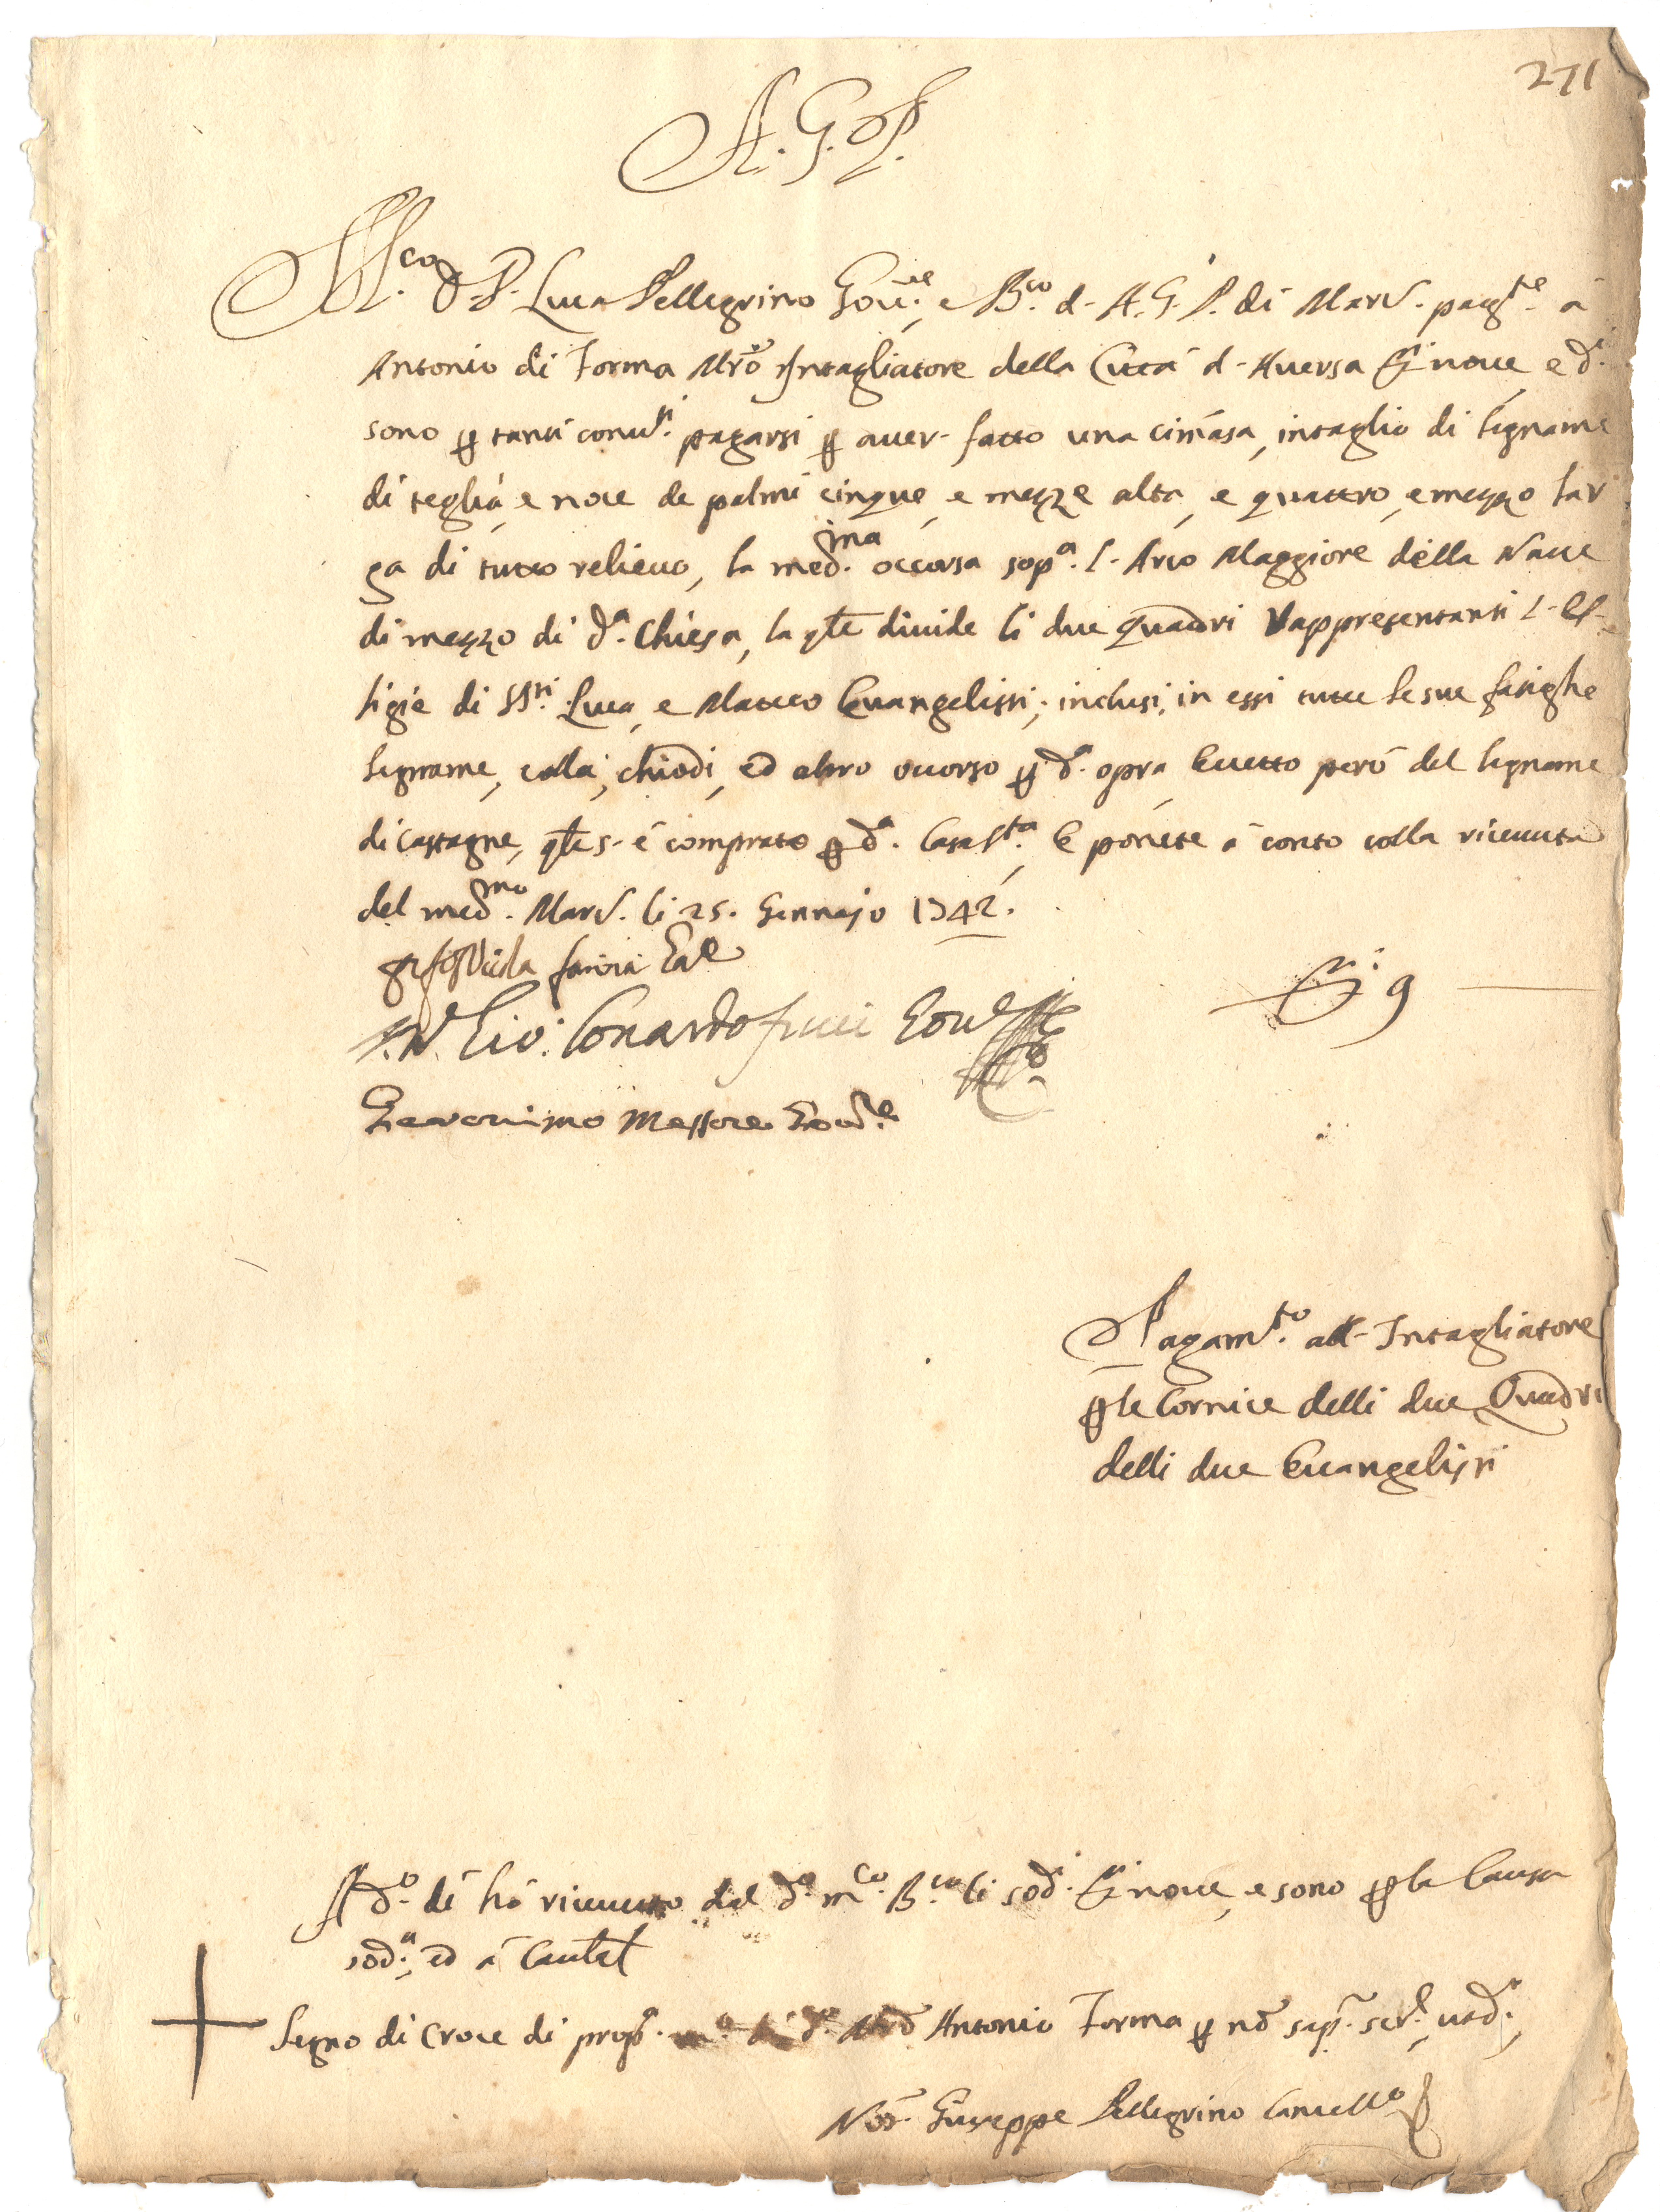 271
A. G. P.
M.co D. P. Luca Pellegrino Gov.re, e B.co d- A. G. P. di Marc. pag.te à
Antonio di Forma Mro Intagliatore della Città d- Aversa D.i nove, e d.i
sono p tanti conv.ti pagarsi p aver- fatto una cimása, intaglio di legname
di teglia, e noce de palmi cinque, e mezze alta, e quattro, e mezzo lar
ga di tutto relievo, la med.ma occorsa sop.a l- Arco Maggiore della Nave
di mezzo di d.a Chiesa, la qle divide li due Quadri Rappresentanti l- ef-
figie di SS.ri Luca, e Matteo Evangelisti; inclusi, in essi tutte le sue fatighe
legname, colla, chiodi, ed altro occorso p d.a opra, Eccetto però del legname
di castagne, qle s- è comprato p d.a Casa S.ta, E ponete à conto colla ricevuta
del med.mo Marc. li 25. Gennajo 1742.
D.i 9
Gio: Conardo Gov.re
Geronimo Messore Gov.re
Pagam.to all- Intagliatore
p le Cornice delli due Quadri
delli due Evangelisti
A d.o dì hò ricevuto dal d.o m.co B.co li sod.i D.i nove, e sono p la Causa
sod.a, ed à Cautel
Segno di Croce di prop.a m.o di d.o Mro Antonio Forma p nō sap. scr.e, ut d.r,
Not. Giuseppe Pellegrino Cancell.o